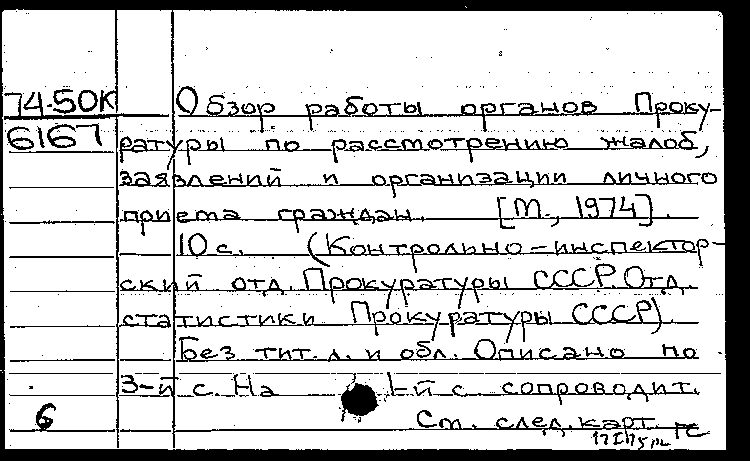 74-50К Обзор работы органов Проку-
6167 ратуры по рассмотрению жалоб,
заявлений и организации личного
приема граждан. [М., 1974].
10 с. (Контрольно-инспектор-
ский отд. Прокуратуры СССР. Отд.
статистики Прокуратуры СССР).
Без тит. л. и обл. Описано по
3-й с. На 1-й с. сопроводит.
6 См. след. карт.